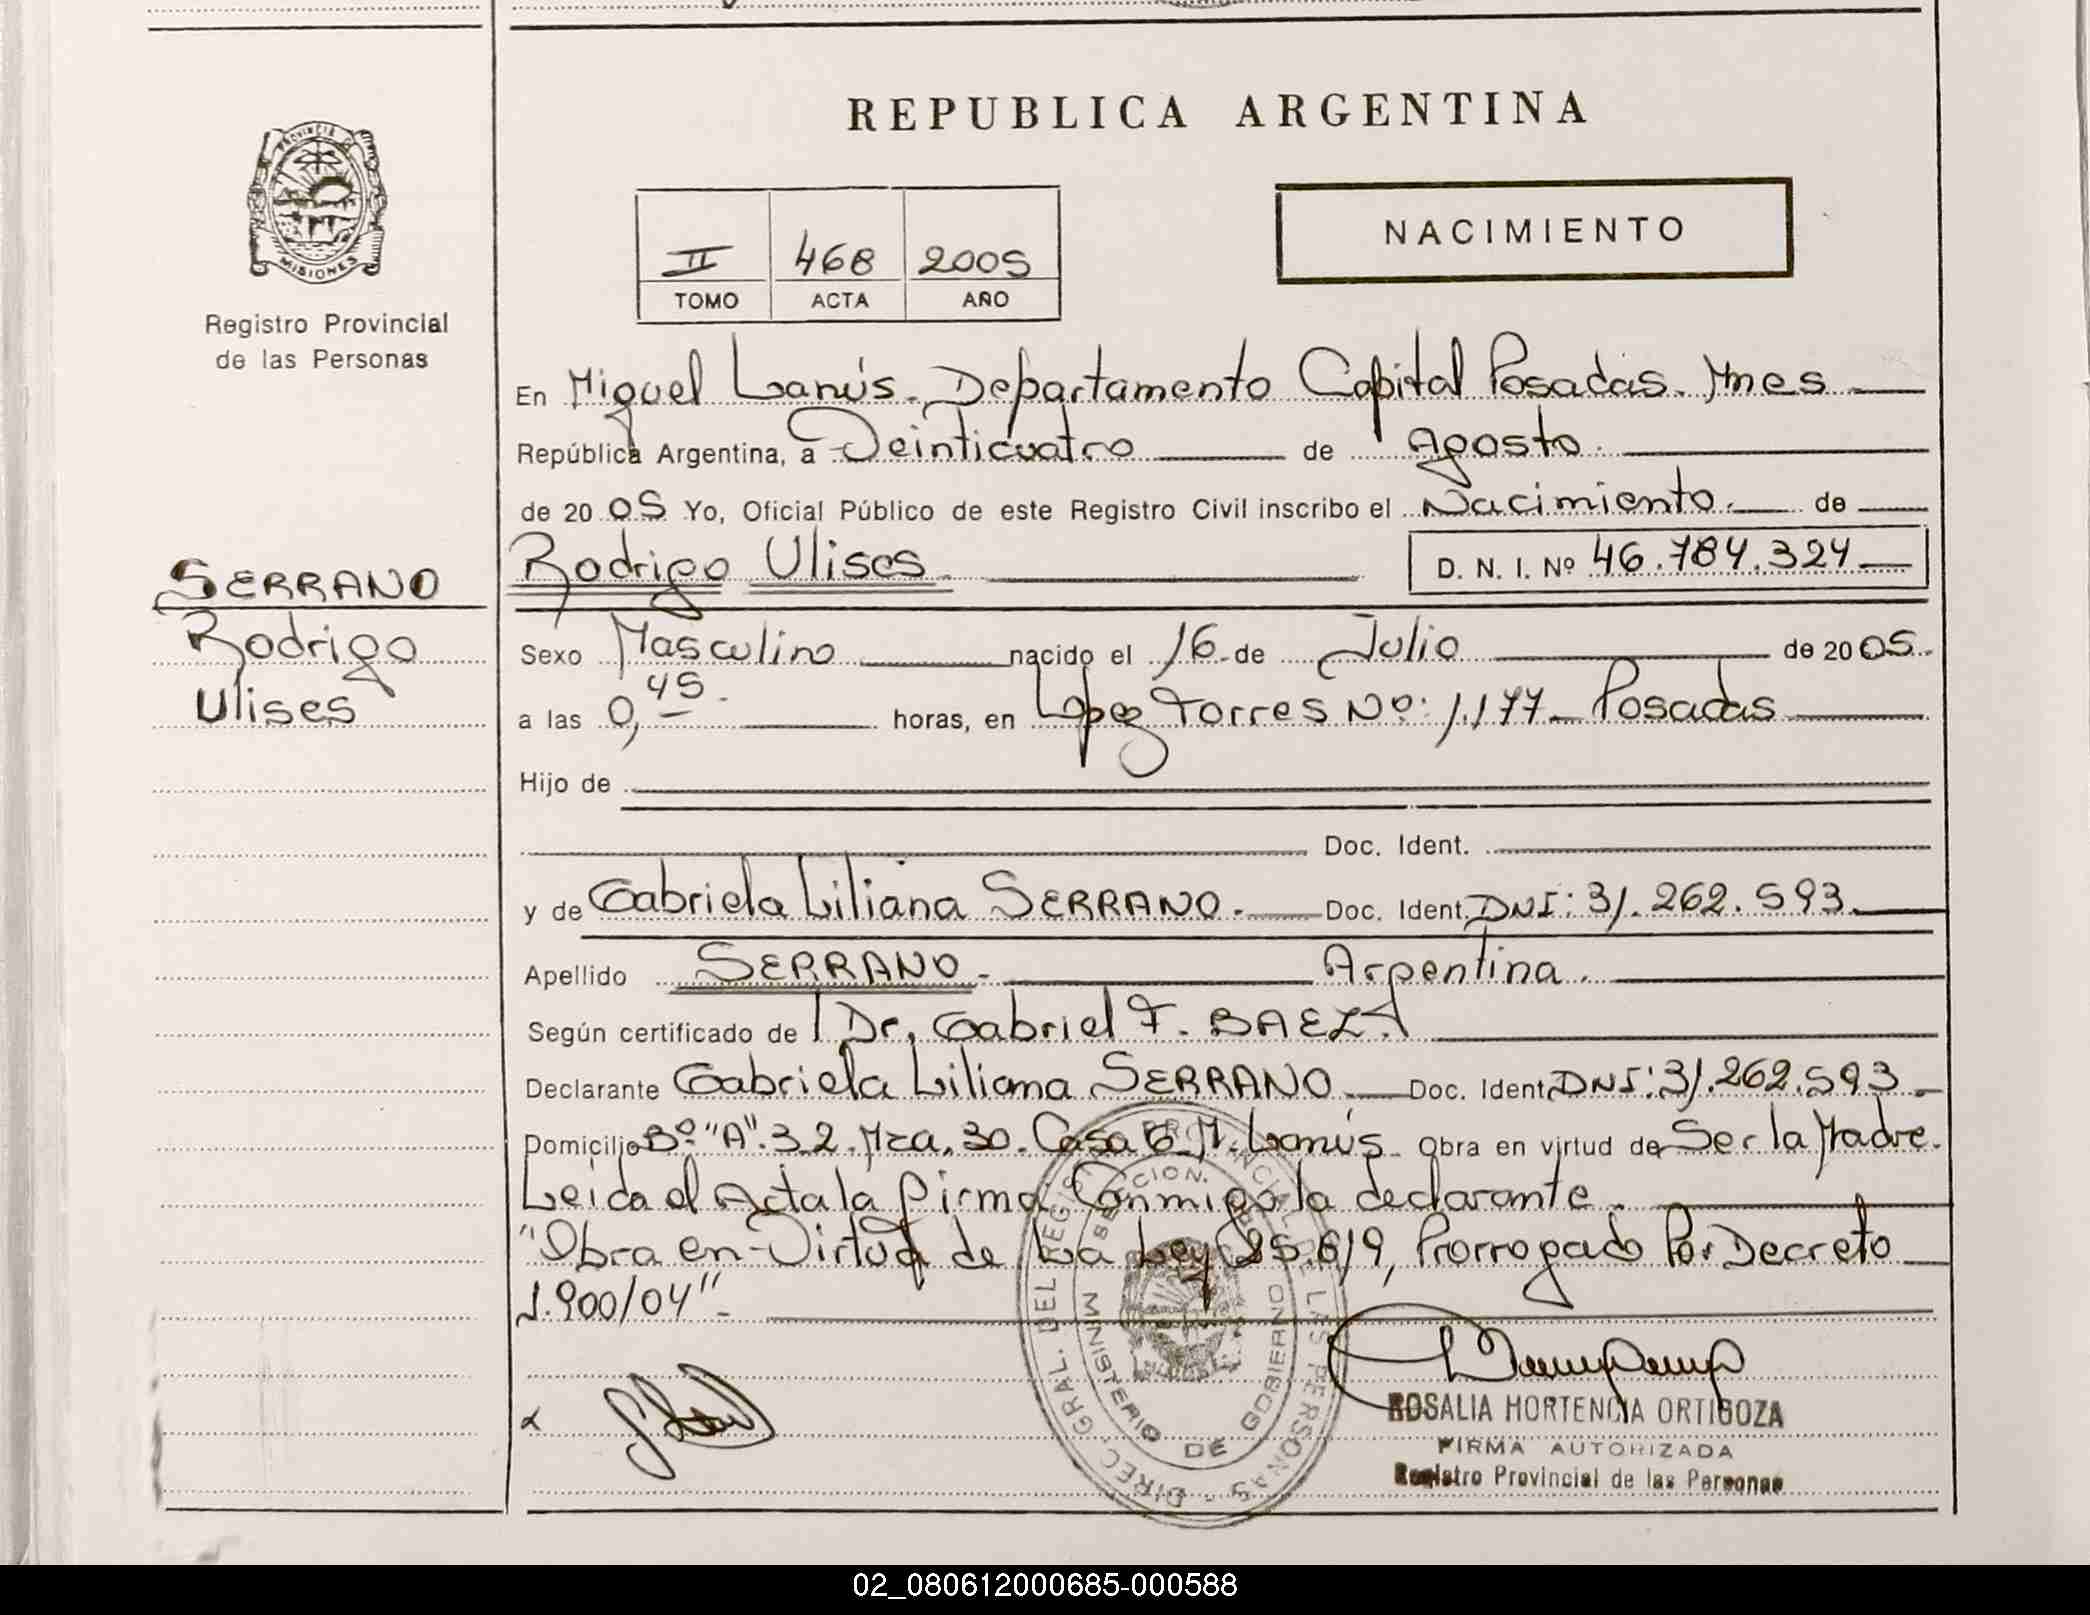 REPUBLICA ARGENTINA
PROVINCIA DE MISIONES
Registro Provincial
de las Personas
II 468 2005
TOMO ACTA AÑO
NACIMIENTO
En Miguel Lanús. Departamento Capital Posadas. Mnes
República Argentina, a Veinticuatro de Agosto.
de 2005 Yo, Oficial Público de este Registro Civil inscribo el Nacimiento. de
SERRANO
Rodrigo
Ulises
Rodrigo Ulises D. N. I. Nº 46.784.324
Sexo Masculino nacido el 16 de Julio de 2005.
a las 0,45. horas, en López Torres Nº: 1.177 Posadas
Hijo de
Doc. Ident.
y de Gabriela Liliana SERRANO. Doc. Ident. DNI: 31.262.593.
Apellido SERRANO. Argentina.
Según certificado de Dr. Gabriel F. BAEZ.
Declarante Gabriela Liliana SERRANO Doc. Ident. DNI: 31.262.593.
Domicilio Bº "A" 3.2. Mza. 30. Casa 6 M. Lanús. Obra en virtud de Ser la Madre.
Leida el Acta la firma Conmigo la declarante.
"Obra en Virtud de La Ley 25.819, Prorrogado Por Decreto
1.900/04".
DIREC. GRAL. DEL REGISTRO PROVINCIAL DE LAS PERSONAS
MINISTERIO DE GOBIERNO
ROSALIA HORTENCIA ORTIGOZA
FIRMA AUTORIZADA
Registro Provincial de las Personas
02_080612000685-000588